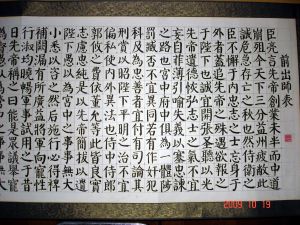 前出師表
臣亮言先帝創業未半而中道
崩殂今天下三分益州疲敝此
誠危急存亡之秋也然侍衛之
臣不懈于內忠志之士忘身于
外者蓋追先帝之殊遇欲報之
于陛下也誠宜開張聖聽以光
先帝遺德恢弘志士之氣不宜
妄自菲薄引喻失義以塞忠諫
之路也宮中府中俱為一體陟
罰臧否不宜異同若有作奸犯
科及為忠善者宜付有司論其
刑賞以昭陛下平明之治不宜
偏私使內外異法也侍中侍郎
郭攸之費依董允等此皆良實
志慮忠純是以先帝簡拔以遺
陛下愚以為宮中之事事無大
小悉以咨之然后施行必得裨
補闕漏有所廣益將軍向寵性
行淑均曉暢軍事試用于昔
日 稱之曰能是 眾議舉寵
2009 10 19